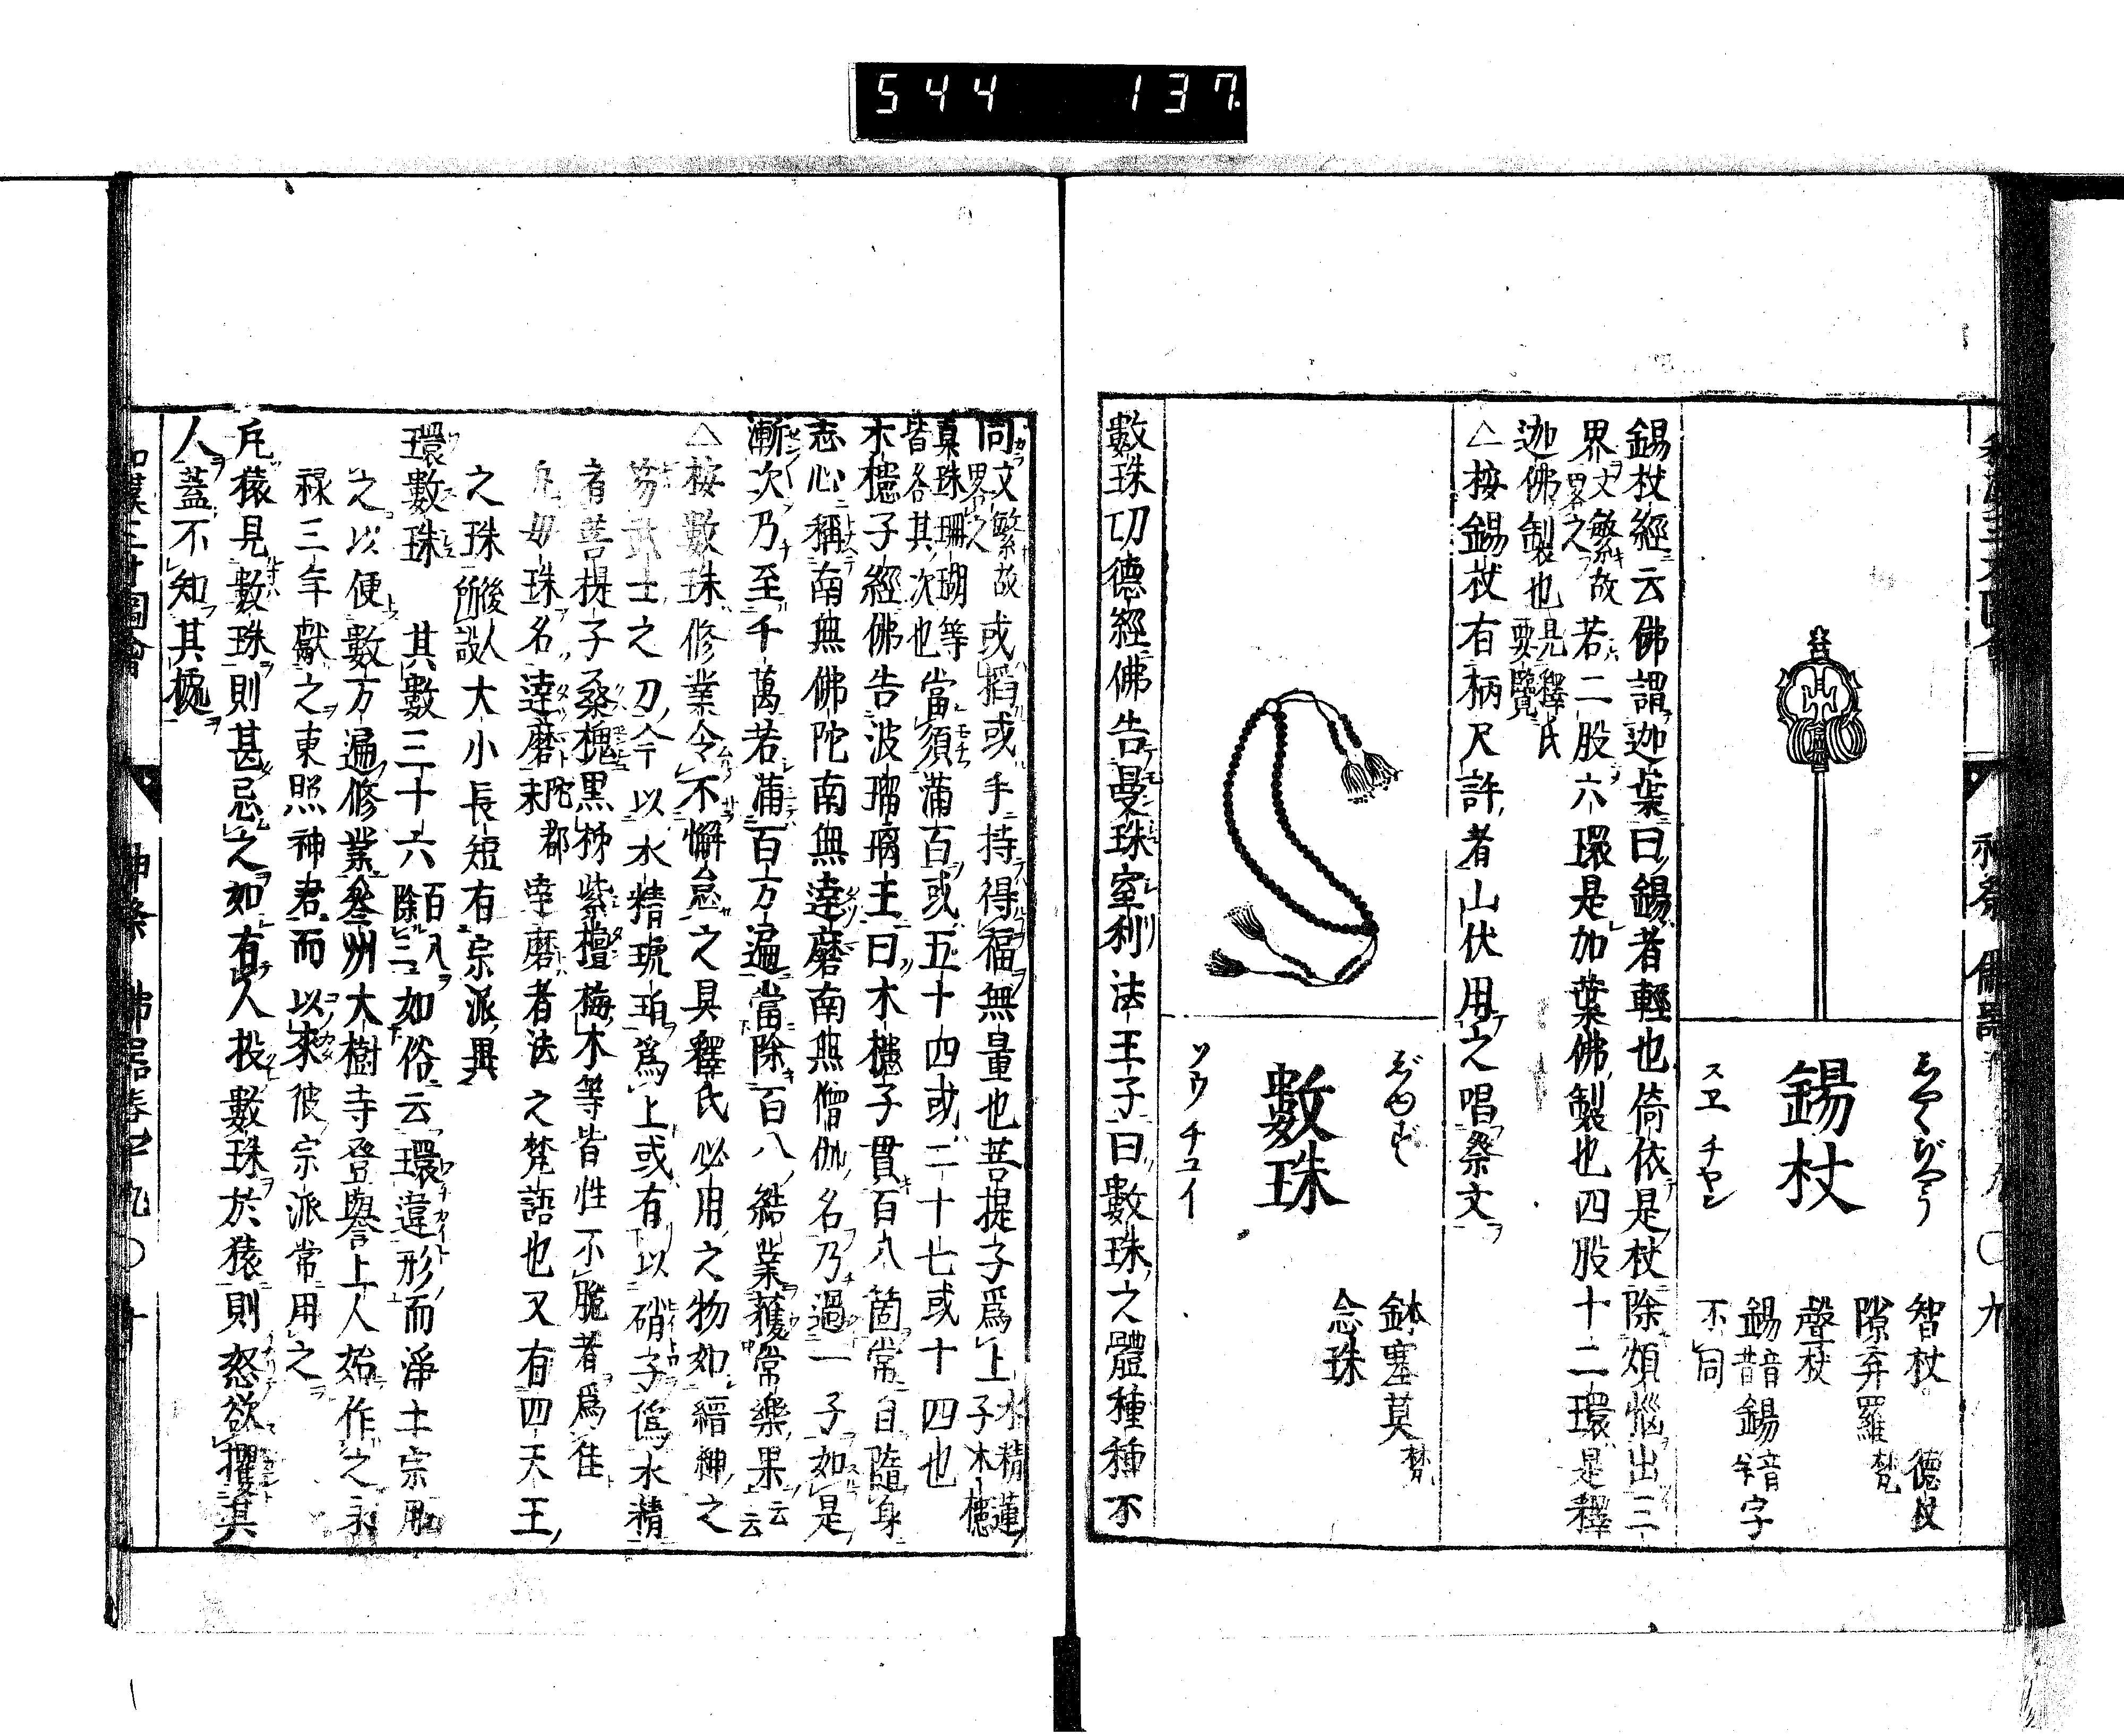 544 137
錫杖
しやくぢやう
スヱ チヤン
智杖 德杖
隙弃羅 梵
聲杖
錫音昔錫音羊字
不同
錫杖經云佛謂迦葉曰錫者輕也倚依是杖除煩惱出三
界文繁故畧之若二股六環是加葉佛製也四股十二環是釋
迦佛製也見釋氏要覽
△按錫杖有柄尺許者山伏用之唱祭文
數珠
じゆず
ソウ チユイ
鉢塞莫 梵
念珠
數珠功德經佛告曼珠室利法王子曰數珠之體種種不
同文繁故畧之或搯或手持得福無量也菩提子爲上水精蓮子木槵
眞珠珊瑚等皆各其次也當須滿百或五十四或二十七或十四也
木槵子經佛告波瑠璃王曰木槵子貫百八箇常自隨身
志心稱南無佛陀南無達磨南無僧伽名乃過一子如是
漸次乃至千萬若滿百万遍當除百八結業獲常樂果云云
△按數珠修業令不懈怠之具釋氏必用之物如縉紳之
笏武士之刀今以水精琥珀爲上或有以硝子僞水精
者菩提子桑槐黑柹紫檀梅木等皆性不脆者爲佳
凡母珠名達磨未陀都達磨者法之梵語也又有四天王
之珠後人所設大小長短有宗派異
環數珠 其數三十六百八除三如俗云環違形而淨土宗用
之以便數万遍修業叅州大樹寺登譽上人始作之永
祿三年獻之東照神君而以來彼宗派常用之
凡猿見數珠則甚忌之如有人投數珠於猿則怒欲攫其
人蓋不知其槐